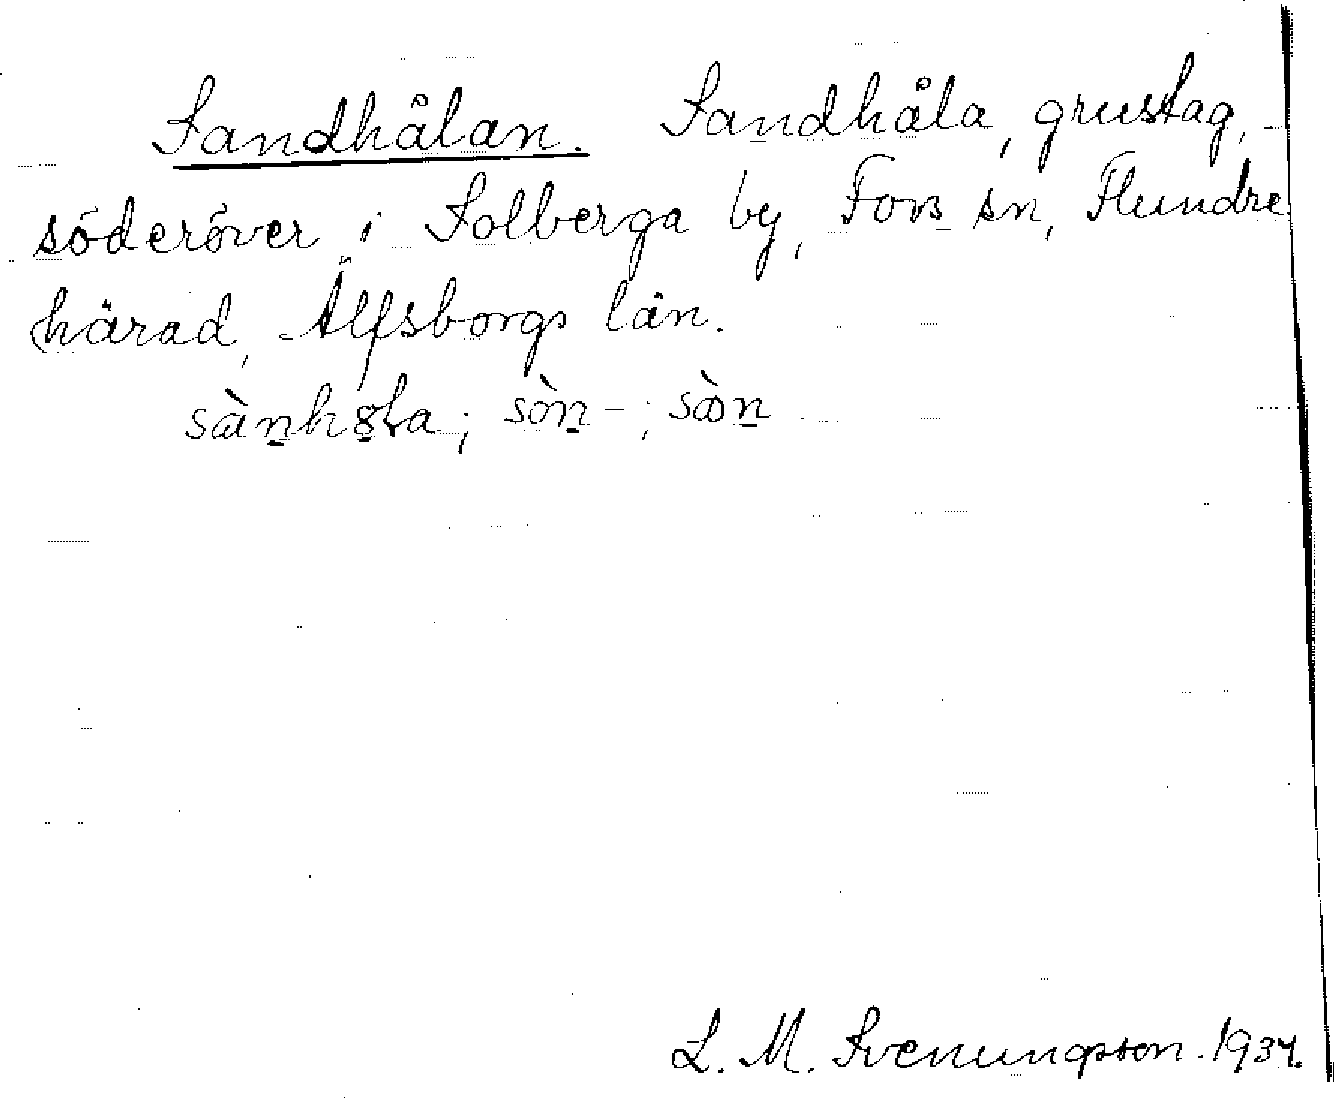 Sandhålan. Sandhåla, grustag,
söderöver i Solberga by, Fors sn, Flundre
härad, Älfsborgs län.
sàn̲h
; sòn̲ – ; sò̵n̲
L. M. Svenungsson. 1934.